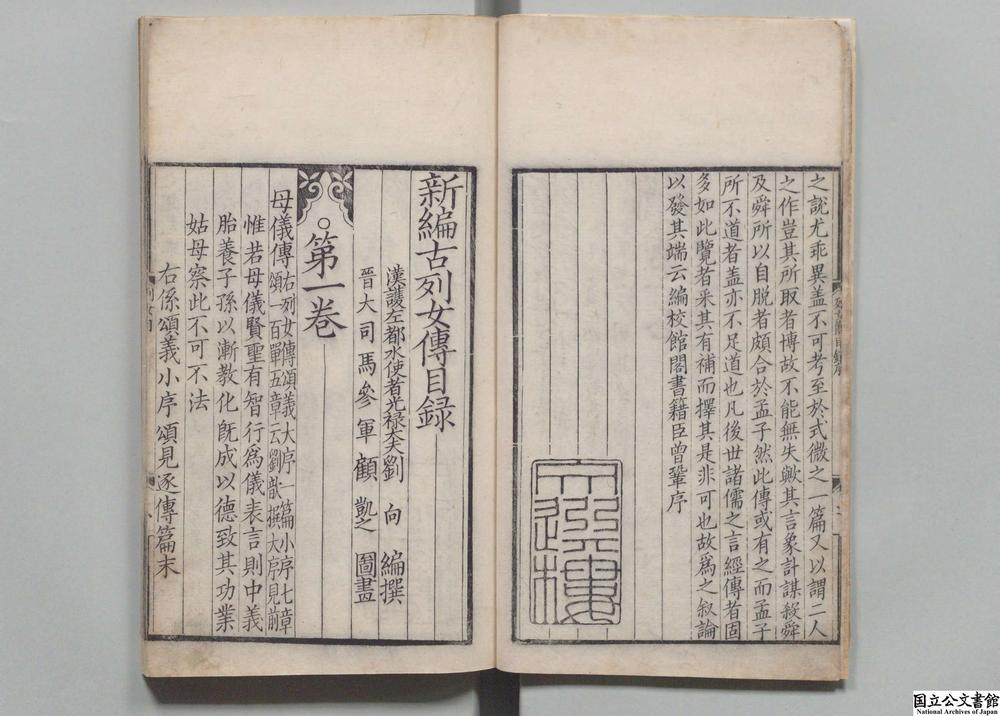 之說尤乖異盖不可考至於式微之一篇又以謂二人
之作豈其所取者博故不能無失歟其言象計謀殺舜
及舜所以自脫者頗合於孟子然此傳或有之而孟子
所不道者盖亦不足道也凡後世諸儒之言經傳者固
多如此覽者采其有補而擇其是非可也故爲之叙論
以發其端云編校館閣書籍臣曾鞏序
新編古列女傳目録
漢護左都水使者光禄大夫劉向編撰
晉大司馬參軍顧凱之圖畫
○第一卷
母儀傳右列女傳頌義大序一篇小序七章
頌一百單五章云劉歆撰大序見前
惟若母儀賢聖有智行爲儀表言則中義
胎養子孫以漸教化旣成以德致其功業
姑母察此不可不法
右係頌義小序頌見逐傳篇末
国立公文書館
National Archives of Japan